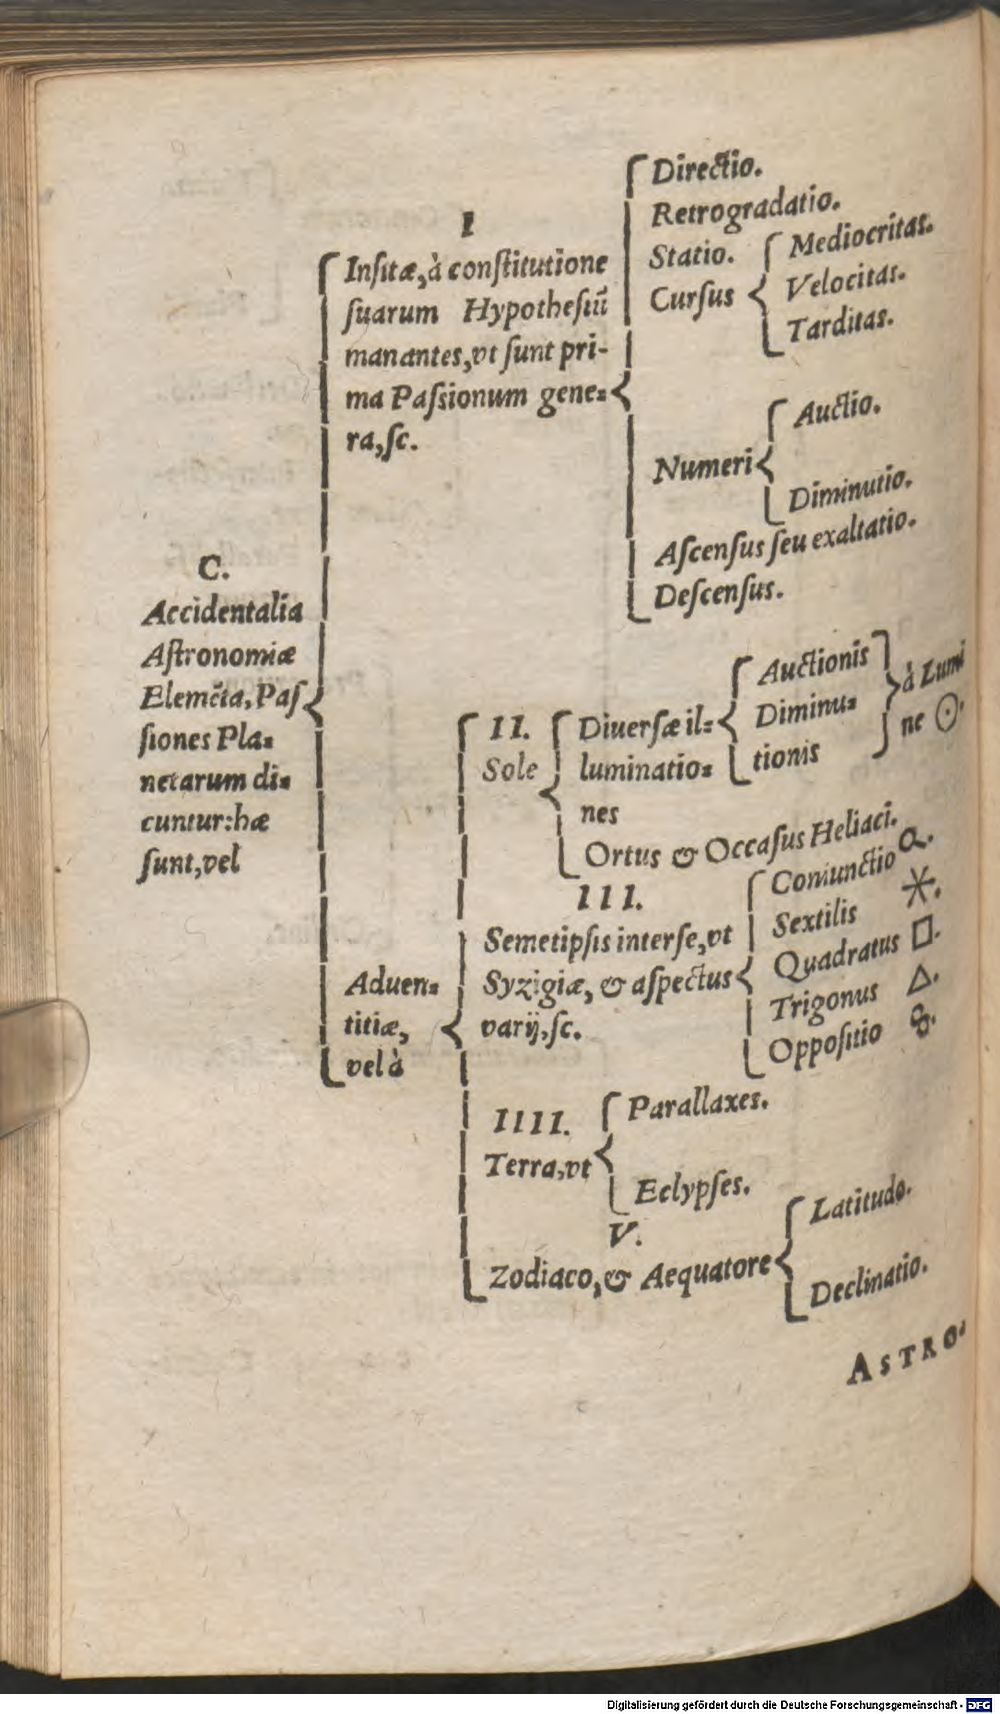 C.
Accidentalia
Aſtronomiæ
Elemẽta, Paſ
ſiones Pla-
netarum di-
cuntur: hæ
ſunt, vel
I
Inſitæ, à conſtitutione
ſuarum Hypotheſiũ
manantes, vt ſunt pri-
ma Paſsionum gene-
ra, ſc.
Directio.
Retrogradatio.
Statio.
Curſus
Mediocritas.
Velocitas.
Tarditas.
Numeri
Auctio.
Diminutio.
Aſcenſus ſeu exaltatio.
Deſcenſus.
Aduen-
titiæ,
vel à
II.
Sole
Diuerſæ il-
luminatio-
nes
Auctionis
Diminu-
tionis
à Lumi
ne ☉.
Ortus & Occaſus Heliaci.
III.
Semetipſis inter ſe, vt
Syzigiæ, & aſpectus
varij, ſc.
Coniunctio ☌.
Sextilis ⚹.
Quadratus □.
Trigonus △.
Oppoſitio ☍.
IIII.
Terra, vt
Parallaxes.
Eclypſes.
V.
Zodiaco, & Aequatore
Latitudo.
Declinatio.
ASTRO-
Digitalisierung gefördert durch die Deutsche Forschungsgemeinschaft - DFG